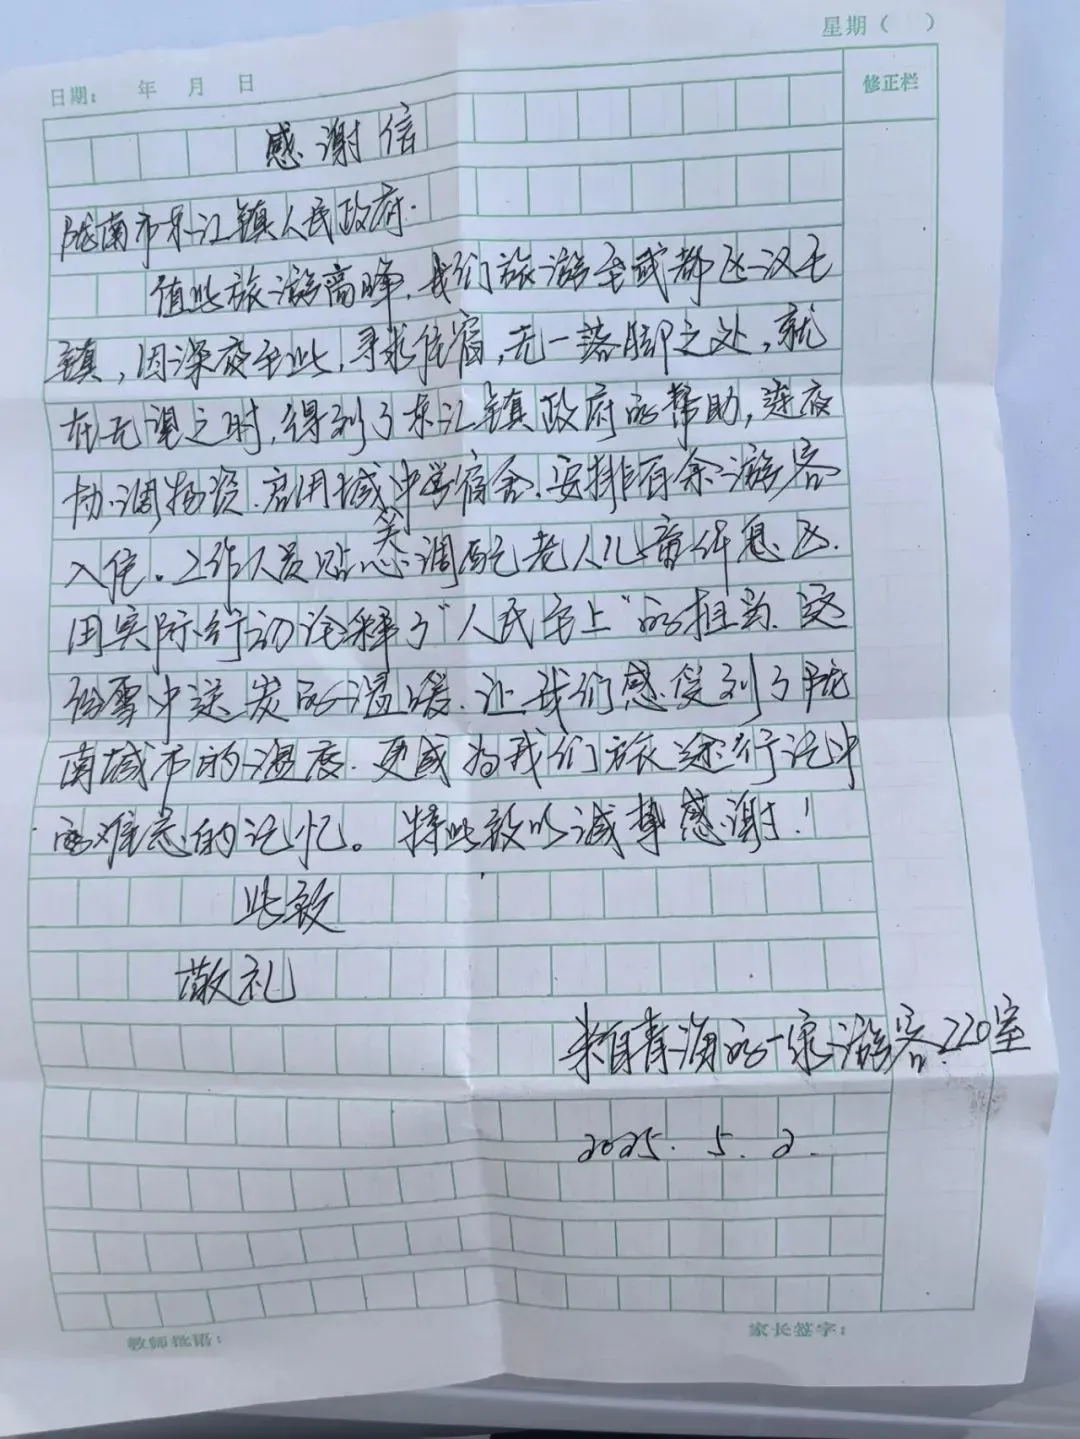 星期（ ）
日期： 年 月 日
修正栏
感谢信
陇南市东江镇人民政府.
值此旅游高峰，我们旅游至武都区汉王
镇，因深夜至此，寻求住宿，无一落脚之处，就
在无望之时，得到了东江镇政府的帮助，连夜
协调物资.启用城中学宿舍.安排百余游客
入住。工作人员贴心调配老人儿童休息区.
用实际行动诠释了“人民至上”的担当.这
份雪中送炭的温暖.让我们感受到了陇
南城市的温度.更成为我们旅途行记中
的难忘的记忆。特此致以诚挚感谢！
此致
敬礼
来自青海的一家游客.220室
2025.5.2.
教师批语：
家长签字：